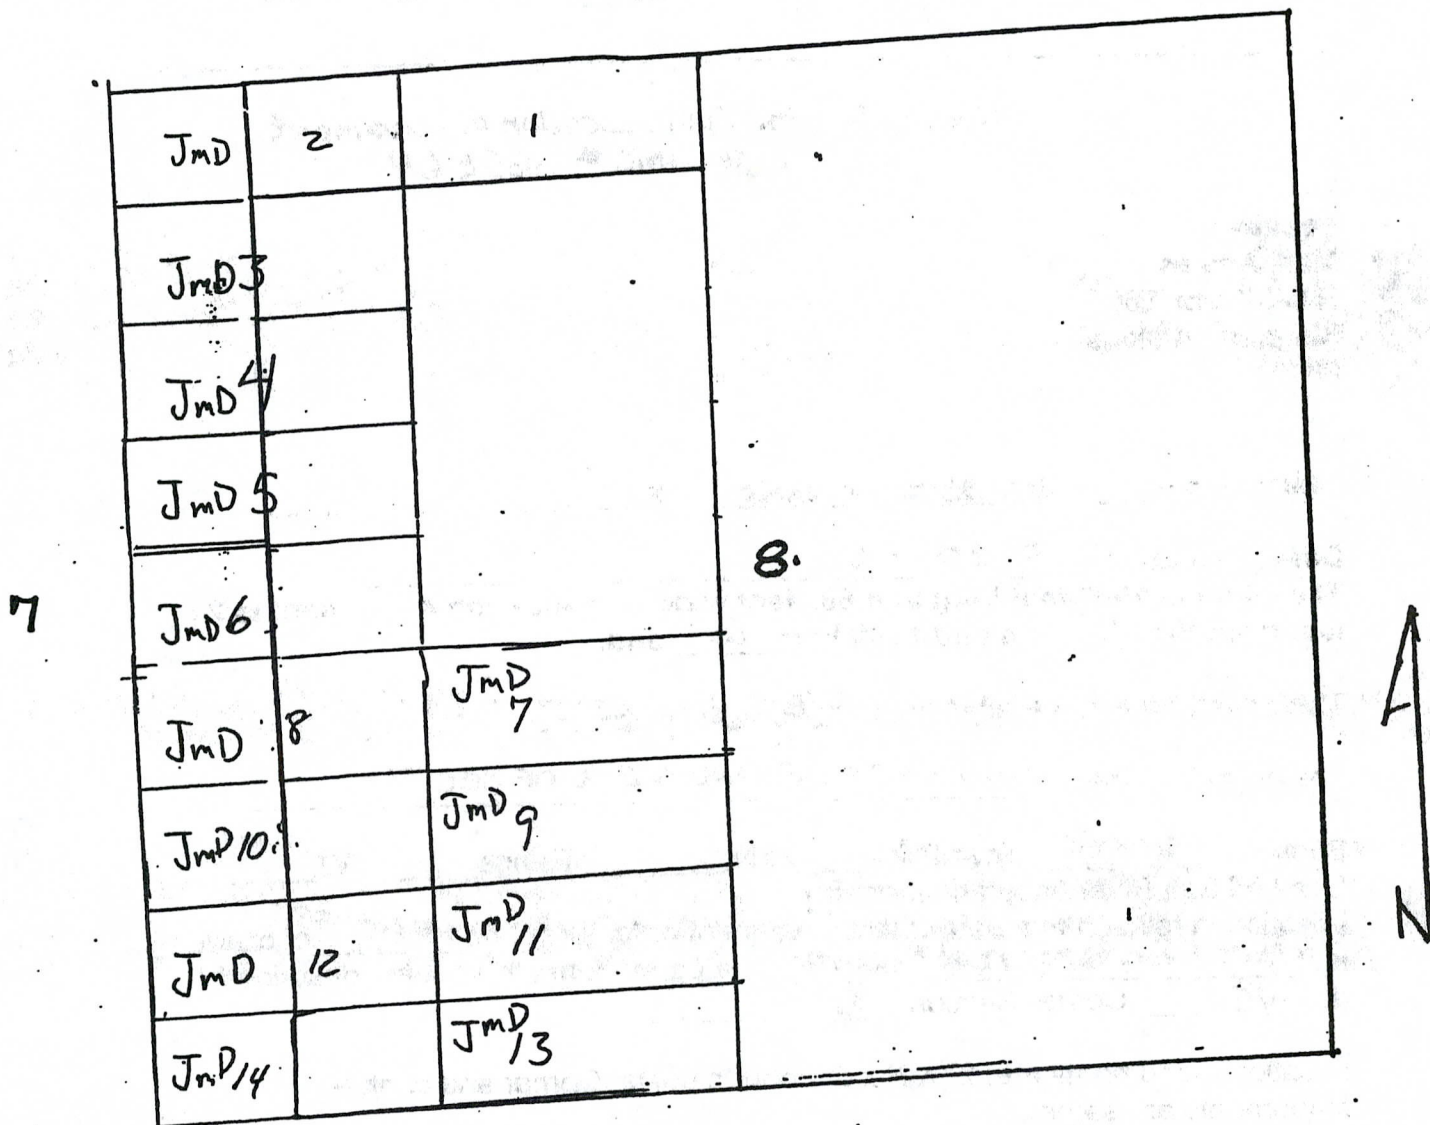 JmD 2 1
JmD 3
JmD 4
JmD 5
8.
7
JmD 6
JmD 7
JmD 8
JmD 9
JmD 10
JmD 11
JmD 12
JmD 13
JmD 14
N